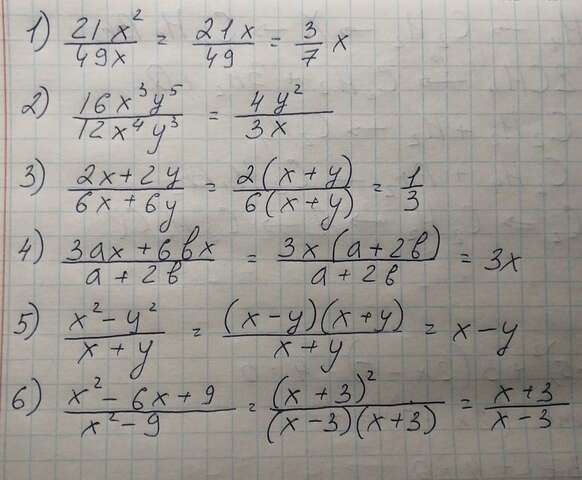 1) 21x²/49x = 21x/49 = 3/7 x
2) 16x³y⁵/12x⁴y³ = 4y²/3x
3) 2x+2y/6x+6y = 2(x+y)/6(x+y) = 1/3
4) 3ax+6вx/a+2в = 3x(a+2в)/a+2в = 3x
5) x²-y²/x+y = (x-y)(x+y)/x+y = x-y
6) x²-6x+9/x²-9 = (x+3)²/(x-3)(x+3) = x+3/x-3